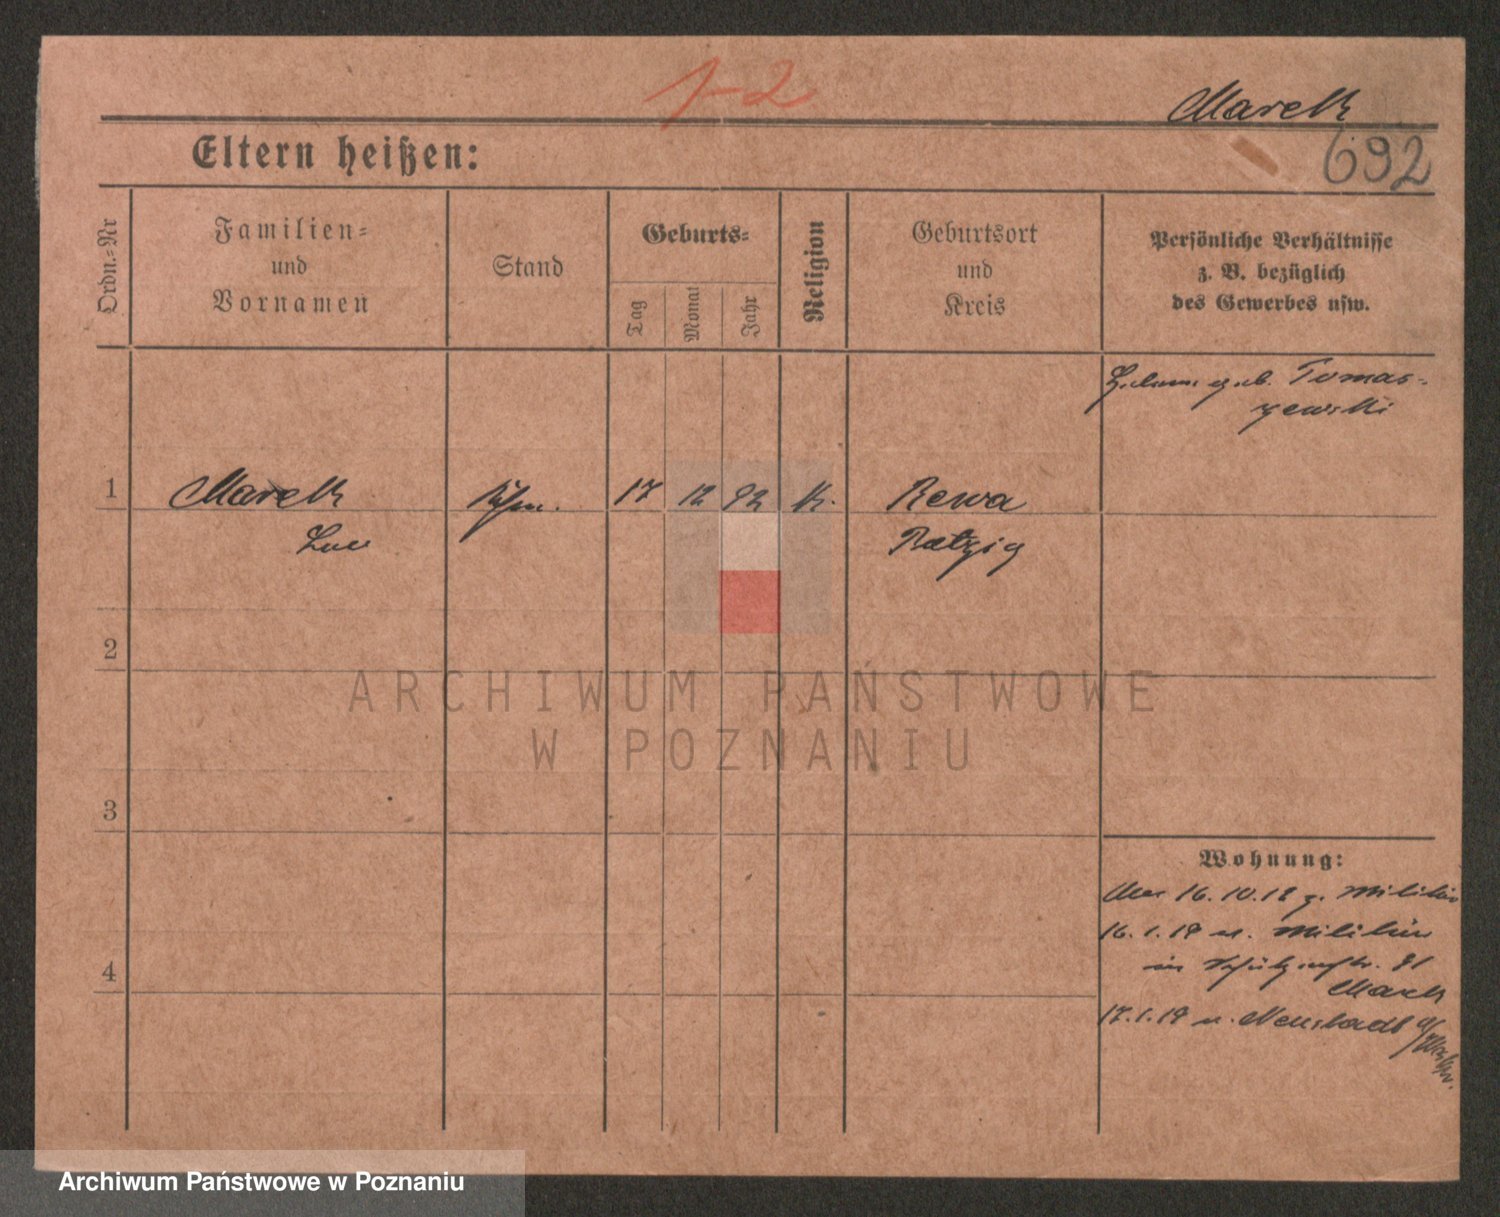 1-2
Marek
692
Eltern heißen:
Ordn.-Nr
Familien-
und
Vornamen
Stand
Geburts-
Tag
Monat
Jahr
Religion
Geburtsort
und
Kreis
Persönliche Verhältnisse
z. B. bezüglich
des Gewerbes usw.
geb. Tomas-
zewski
1
Marek
17
12
92
K.
Rewa
Leo
Ratzig
2
ARCHIWUM PAŃSTWOWE
W POZNANIU
3
Wohnung:
16.10.18 z. Militär
16.1.19 v. Militär
in 21
4
Marek
17.1.19 n. Neustadt a/Warthe.
Archiwum Państwowe w Poznaniu